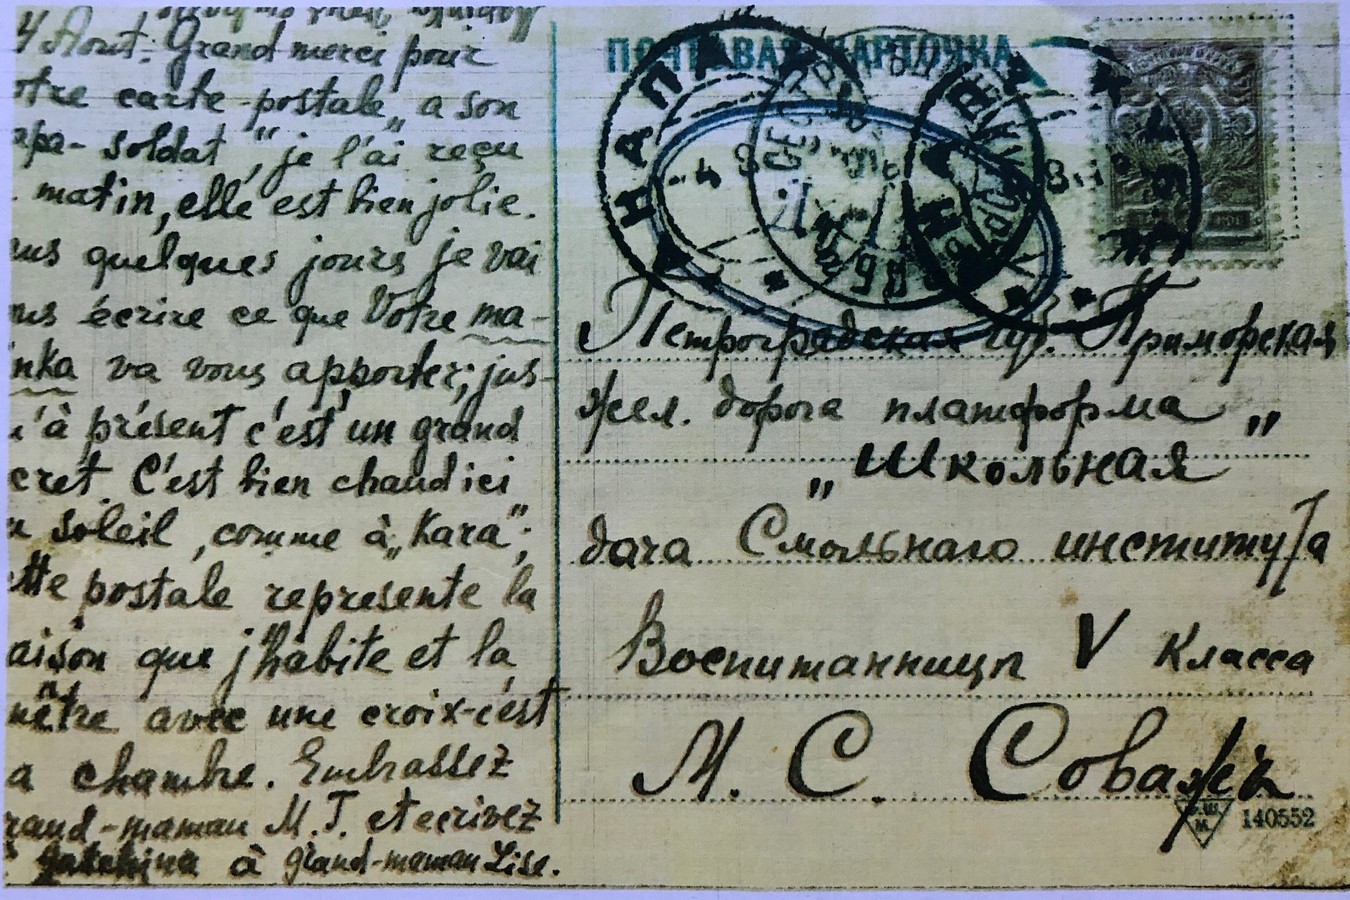 4 Aout. Grand merci pour
otre carte-postale „a son
apa-soldat", je l'ai reçu
matin, elle est bien jolie.
ns quelques jours je vai
us écrire ce que Votre ma-
inka va vous apporter; jus-
'à présent c'est un grand
cret. C'est bien chaud ici
soleil, comme à „Kara";
tte postale represente la
aison que j'habite et la
nêtre avec une croix-c'est
a chambre. Embrassez
rand-maman M. T. et ecrivez
à grand-maman Lise.
ПОЧТОВАЯ КАРТОЧКА
АНАПА
АНАПА
Петроградская губ. Приморская
жел. дорога платформа „
„Школьная
дача Смольнаго института
Воспитанницѣ V класса
М. С. Соважъ
140552